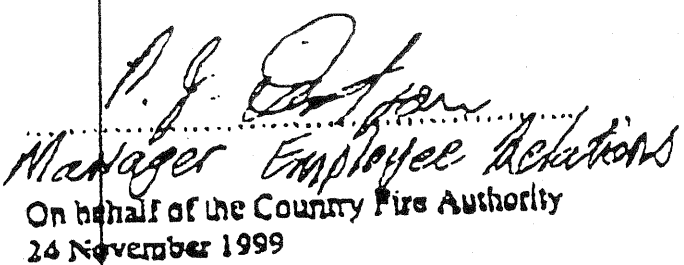 P. J.
Manager Employee Relations
On behalf of the Country Fire Authority
24 November 1999